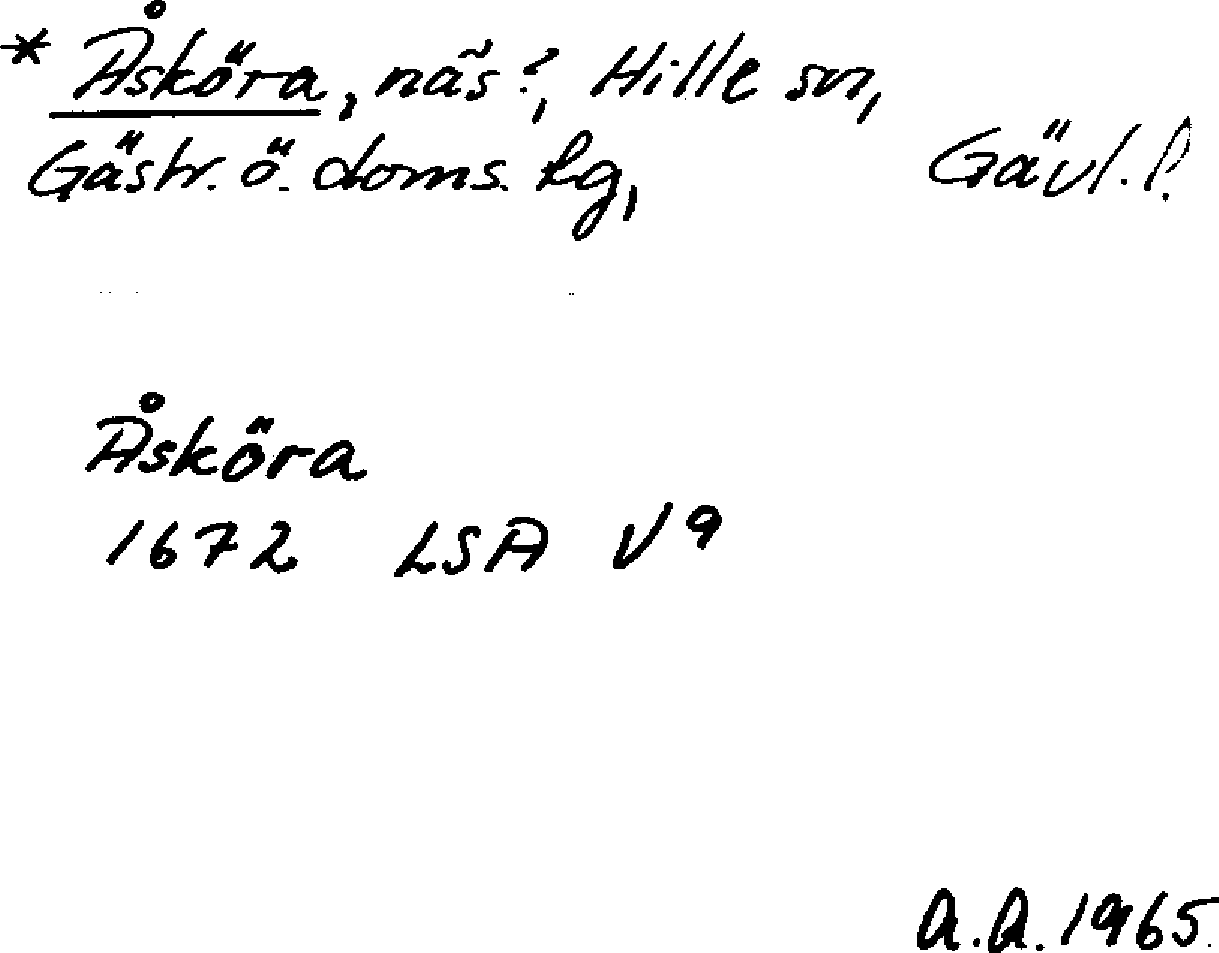 * Åsköra, näs?, Hille sn,
Gästr. ö. doms. hg, Gävl. l.
Åsköra
1672 LSA V9
A.A. 1965.